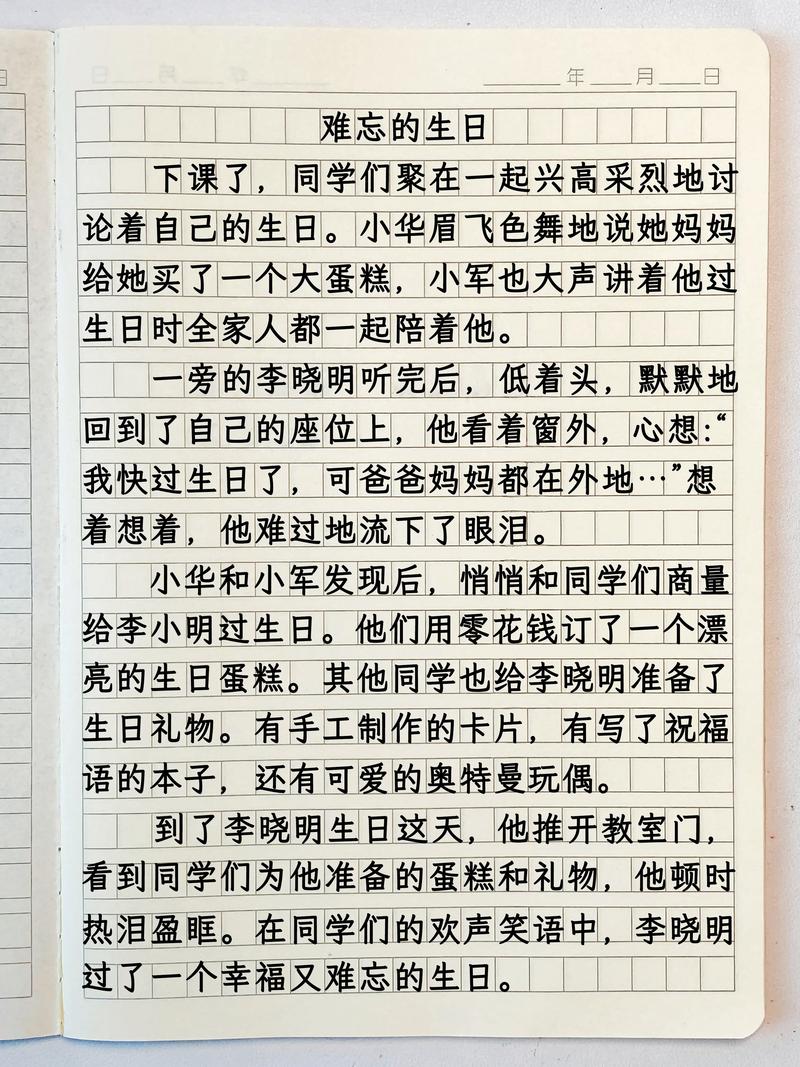 年 月 日
难忘的生日
下课了，同学们聚在一起兴高采烈地讨
论着自己的生日。小华眉飞色舞地说她妈妈
给她买了一个大蛋糕，小军也大声讲着他过
生日时全家人都一起陪着他。
一旁的李晓明听完后，低着头，默默地
回到了自己的座位上，他看着窗外，心想：“
我快过生日了，可爸爸妈妈都在外地…”想
着想着，他难过地流下了眼泪。
小华和小军发现后，悄悄和同学们商量
给李小明过生日。他们用零花钱订了一个漂
亮的生日蛋糕。其他同学也给李晓明准备了
生日礼物。有手工制作的卡片，有写了祝福
语的本子，还有可爱的奥特曼玩偶。
到了李晓明生日这天，他推开教室门，
看到同学们为他准备的蛋糕和礼物，他顿时
热泪盈眶。在同学们的欢声笑语中，李晓明
过了一个幸福又难忘的生日。